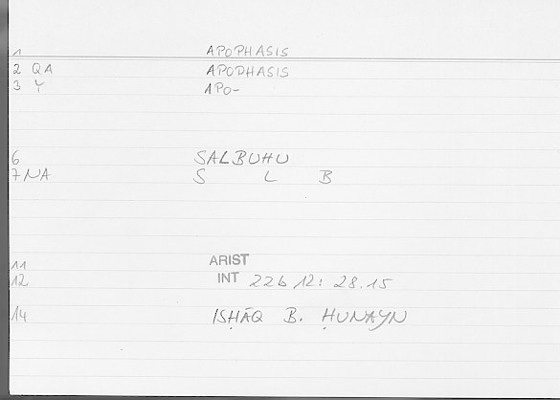 1 APOPHASIS
2 QA APOPHASIS
3 Y APO-
6 SALBUHU
7 NA S L B
11 ARIST
12 INT 22b 12: 28.15
14 ISḤĀQ B. ḤUNAYN